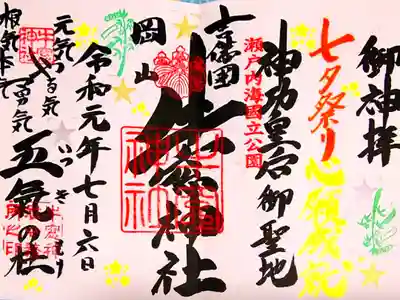 御神拝
七夕祭り
心願成就
神功皇后御聖地
瀬戸内海國立公園
吉備国
牛窓神社
岡山
令和元年七月六日
元気
やる気
勇気
根気
五氣の杜